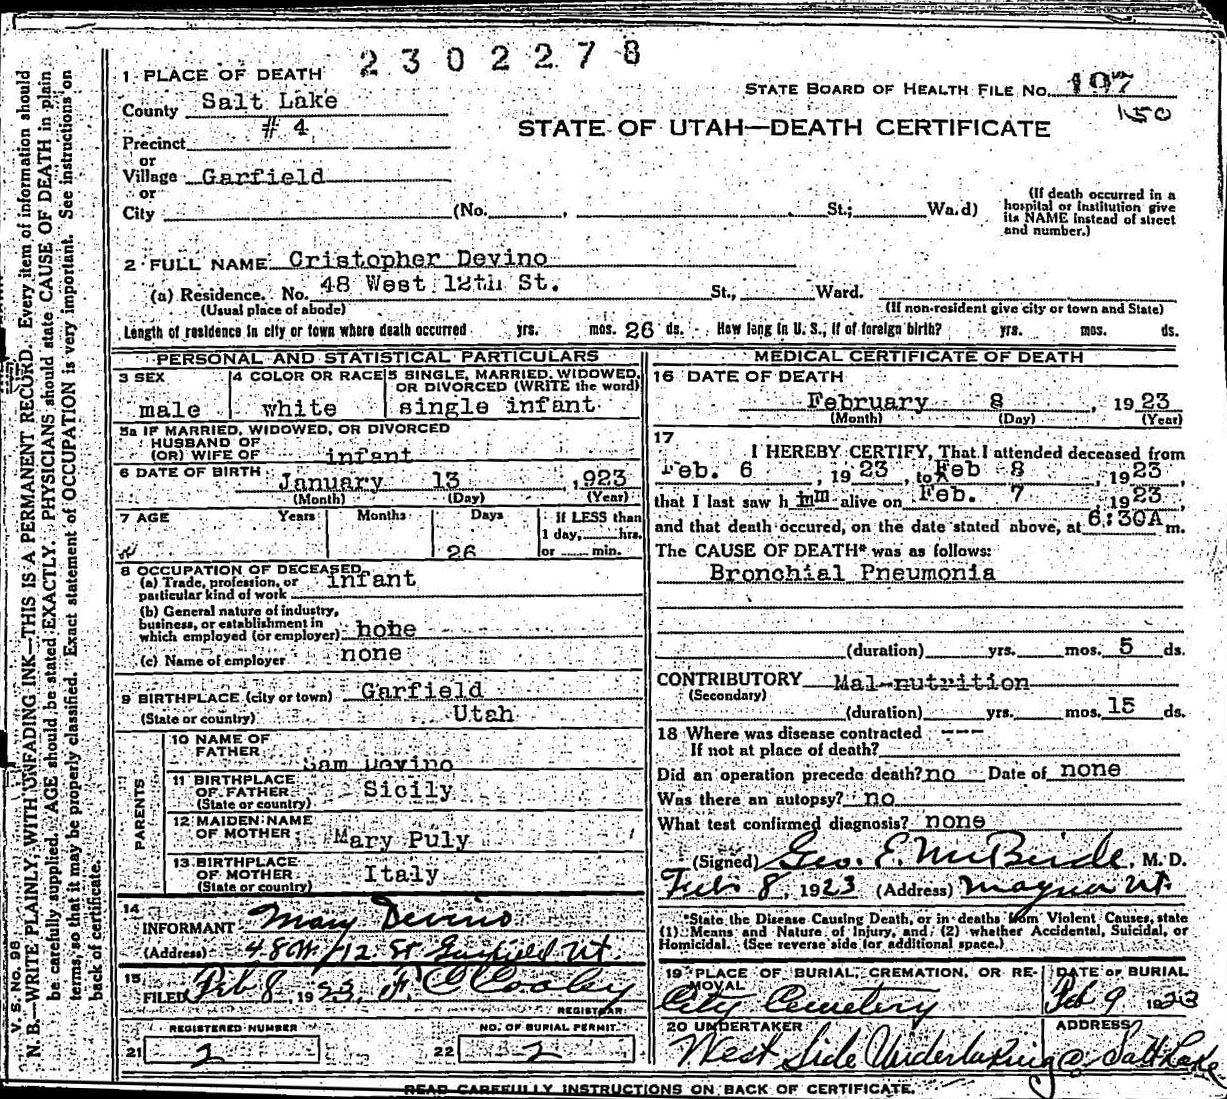 2302278
1 PLACE OF DEATH
STATE BOARD OF HEALTH FILE No. 107
150
County Salt Lake
STATE OF UTAH—DEATH CERTIFICATE
Precinct # 4
or
Village Garfield
or
City (No. , St.; Wa.d)
(If death occurred in a
hospital or institution give
its NAME instead of street
and number.)
2 FULL NAME Cristopher Devino
(a) Residence. No. 48 West 12th St. St., Ward.
(Usual place of abode) (If non-resident give city or town and State)
Length of residence in city or town where death occurred yrs. mos. 26 ds. How long in U. S., if of foreign birth? yrs. mos. ds.
PERSONAL AND STATISTICAL PARTICULARS
3 SEX
male
4 COLOR OR RACE
white
5 SINGLE, MARRIED, WIDOWED,
OR DIVORCED (WRITE the word)
single infant
5a IF MARRIED, WIDOWED, OR DIVORCED
HUSBAND OF
(OR) WIFE OF infant
6 DATE OF BIRTH January 13 , 923
(Month) (Day) (Year)
7 AGE Years Months Days
26
If LESS than
1 day, hrs.
or min.
8 OCCUPATION OF DECEASED
(a) Trade, profession, or
particular kind of work infant
(b) General nature of industry,
business, or establishment in
which employed (or employer) hobe
(c) Name of employer none
9 BIRTHPLACE (city or town) Garfield
(State or country) Utah
PARENTS
10 NAME OF
FATHER Sam Devino
11 BIRTHPLACE
OF FATHER Sicily
(State or country)
12 MAIDEN NAME
OF MOTHER Mary Puly
13 BIRTHPLACE
OF MOTHER Italy
(State or country)
14
INFORMANT Mary Devino
(Address) 48 W 12 St Garfield Ut.
15
FILED Feb 8, 1923, F. C. Cooley
REGISTRAR
REGISTERED NUMBER
21 2
NO. OF BURIAL PERMIT
22 2
MEDICAL CERTIFICATE OF DEATH
16 DATE OF DEATH
February 8 , 1923
(Month) (Day) (Year)
17
I HEREBY CERTIFY, That I attended deceased from
Feb. 6 , 1923 , to Feb 8 , 1923 ,
that I last saw h im alive on Feb. 7 1923 ,
and that death occured, on the date stated above, at 6:30A m.
The CAUSE OF DEATH* was as follows:
Bronchial Pneumonia
(duration) yrs. mos. 5 ds.
CONTRIBUTORY Mal-nutrition
(Secondary)
(duration) yrs. mos. 15 ds.
18 Where was disease contracted ---
If not at place of death?
Did an operation precede death? no Date of none
Was there an autopsy? no
What test confirmed diagnosis? none
(Signed) Geo. E. McBride, M. D.
Feb 8, 1923 (Address) Magna Ut.
*State the Disease Causing Death, or in deaths from Violent Causes, state
(1) Means and Nature of Injury, and (2) whether Accidental, Suicidal, or
Homicidal. (See reverse side for additional space.)
19 PLACE OF BURIAL, CREMATION, OR RE-
MOVAL
City Cemetery
DATE OF BURIAL
Feb 9 1923
20 UNDERTAKER
West Side Undertaking Co
ADDRESS
Salt Lake
READ CAREFULLY INSTRUCTIONS ON BACK OF CERTIFICATE.
V. S. No. 98
N. B.—WRITE PLAINLY, WITH UNFADING INK—THIS IS A PERMANENT RECORD. Every item of information should
be carefully supplied. AGE should be stated EXACTLY. PHYSICIANS should state CAUSE OF DEATH in plain
terms, so that it may be properly classified. Exact statement of OCCUPATION is very important. See instructions on
back of certificate.